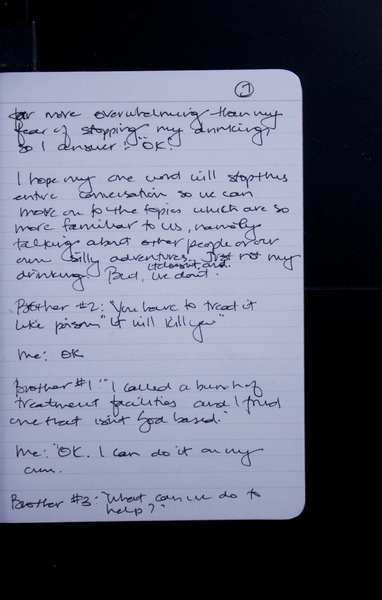 7
far more overwhelming than my
fear of stopping my drinking
so I answer: "OK."
I hope my one word will stop this
entire conversation so we can
move on to the topics which are so
more familiar to us, namely
talking about other people or our
own silly adventures. Just not my
drinking. But, it doesn't, and we don't.
Brother #2: "You have to treat it
like poison" "It will kill you"
Me: OK
Brother #1: "I called a bunch of
treatment facilities and I find
one that isn't God based."
Me: "OK. I can do it on my
own.
Brother #3: "What can we do to
help?"